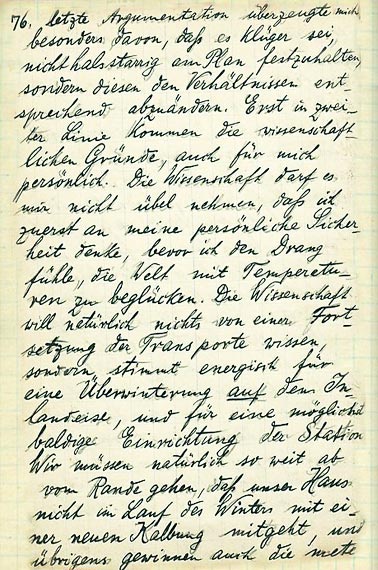 76. letzte Argumentation überzeugte mich
besonders davon, daß es klüger sei,
nicht halsstarrig am Plan festzuhalten,
sondern diesen den Verhältnissen ent-
sprechend abzuändern. Erst in zwei-
ter Linie kommen die wissenschaft-
lichen Gründe, auch für mich
persönlich. Die Wissenschaft darf es
mir nicht übel nehmen, daß ich
zuerst an meine persönliche Sicher-
heit denke, bevor ich den Drang
fühle, die Welt mit Temperatu-
ren zu beglücken. Die Wissenschaft
will natürlich nichts von einer Fort-
setzung der Transporte wissen,
sondern stimmt energisch für
eine Überwinterung auf dem In-
landeise, und für eine möglichst
baldige Einrichtung der Station
Wir müssen natürlich so weit ab
vom Rande gehen, daß unser Haus
nicht im Lauf des Winters mit ei-
ner neuen Kalbung mitgeht, und
übrigens gewinnen auch die mete